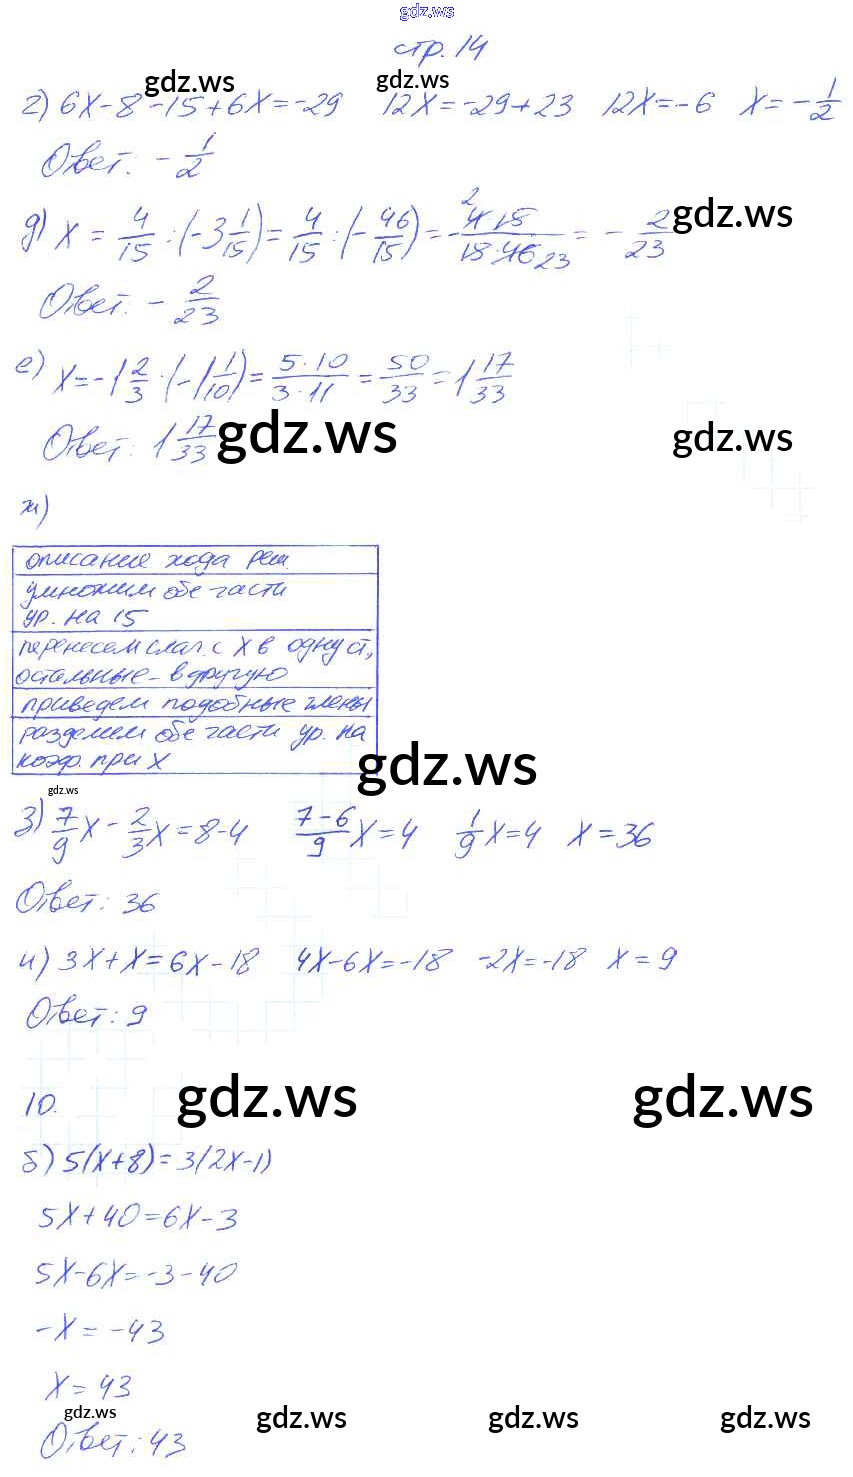 gdz.ws
стр. 14
г) 6x-8-15+6x=-29 12x=-29+23 12x=-6 x=-1/2
gdz.ws gdz.ws
Ответ: -1/2
д) x = 4/15 : (-3 1/15) = 4/15 : (-46/15) = -(4·15)/(15·46) = -2/23
2 23
gdz.ws
Ответ: -2/23
е) x=-1 2/3 · (-1 1/10) = 5·10/3·11 = 50/33 = 1 17/33
Ответ: 1 17/33
gdz.ws gdz.ws
ж)
описание хода реш.
умножим обе части
ур. на 15
перенесем слаг. с x в одну ст,
остальные - в другую
приведем подобные члены
разделим обе части ур. на
коэф. при x
gdz.ws
gdz.ws
з) 7/9 x - 2/3 x = 8-4 7-6/9 x = 4 1/9 x = 4 x = 36
Ответ: 36
и) 3x+x=6x-18 4x-6x=-18 -2x=-18 x=9
Ответ: 9
gdz.ws gdz.ws
10.
б) 5(x+8)=3(2x-1)
5x+40=6x-3
5x-6x=-3-40
-x=-43
x=43
gdz.ws gdz.ws gdz.ws gdz.ws
Ответ: 43